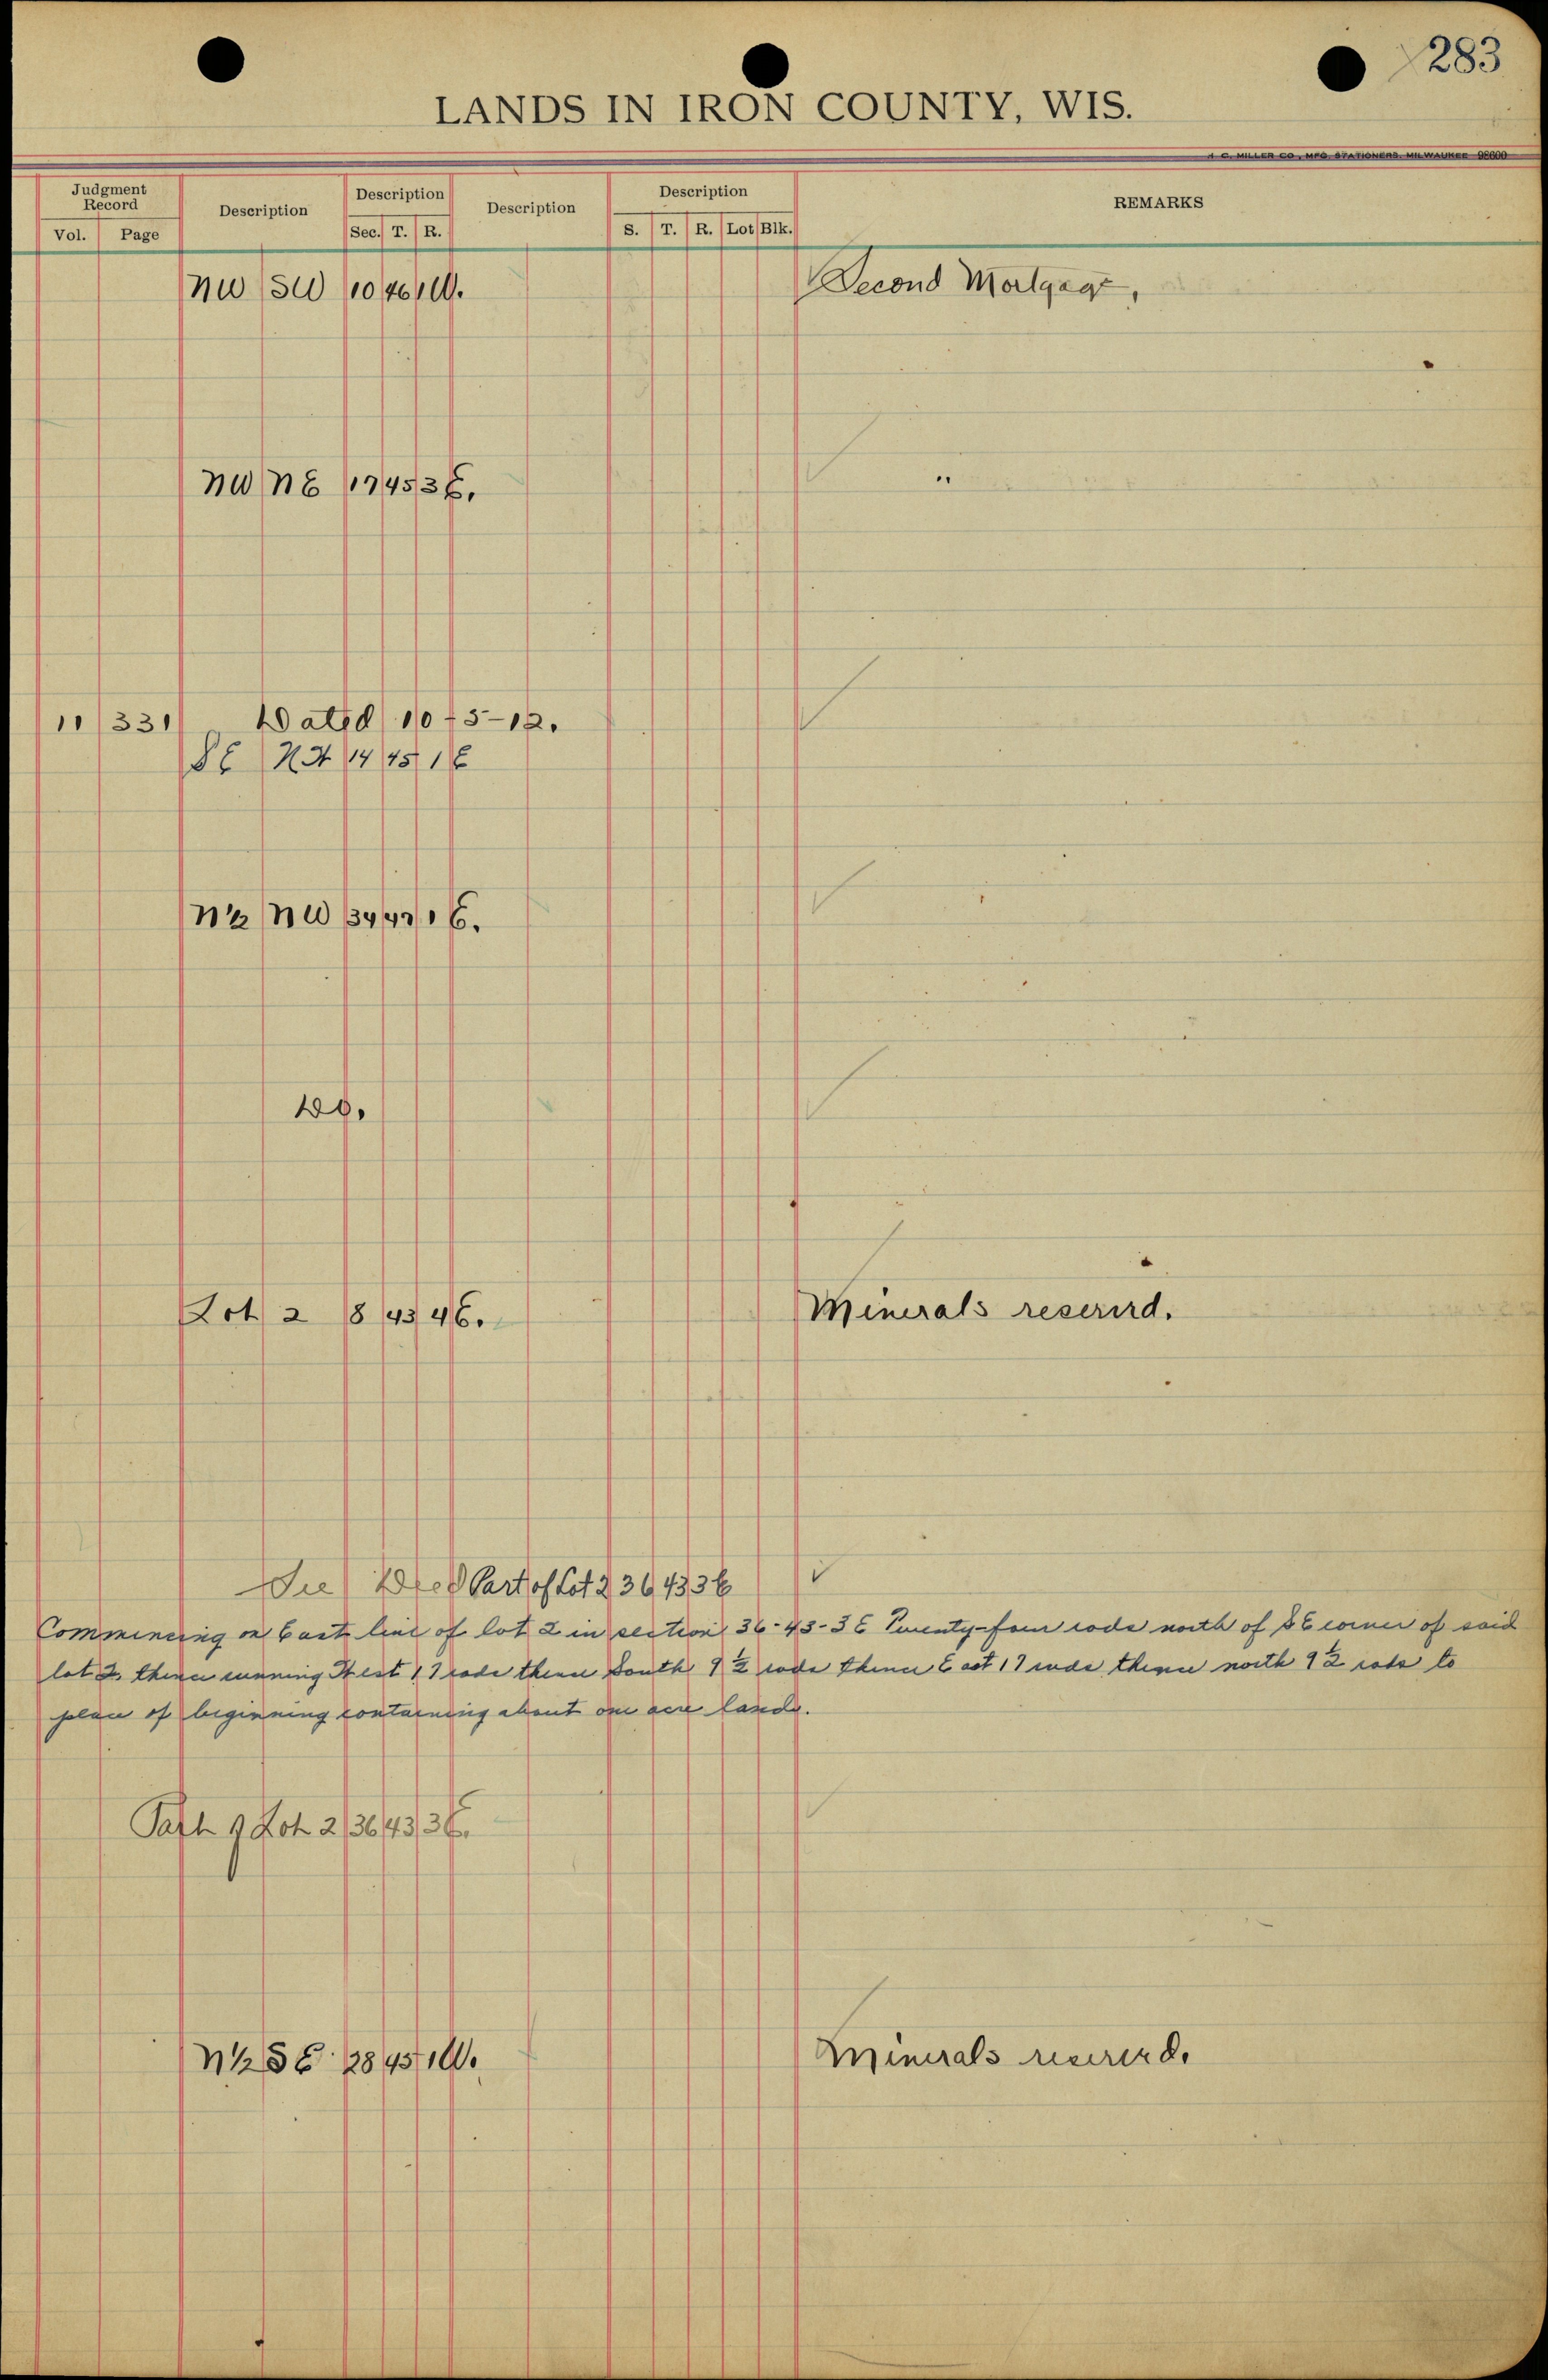 283
LANDS IN IRON COUNTY, WIS.
Judgment Record Description Description Description Description REMARKS
Vol. Page Sec. T. R. S. T. R. Lot Blk.
NW SW 10 46 1W. Second Mortgage,
NW NE 17 45 3E. "
11 331 Dated 10-5-12.
SE 14 45 1E
N½ NW 34 47 1E.
Do.
Lot 2 8 43 4E. Minerals reserved.
See Deed Part of Lot 2 36 43 3E
Commencing on East line of lot 2 in section 36-43-3E Twenty-four rods north of SE corner of said
lot 2, thence running West 17 rods thence South 9½ rods thence East 17 rods thence north 9½ rods to
place of beginning containing about one acre lands.
Part of Lot 2 36 43 3E.
N½ SE 28 45 1W. Minerals reserved.